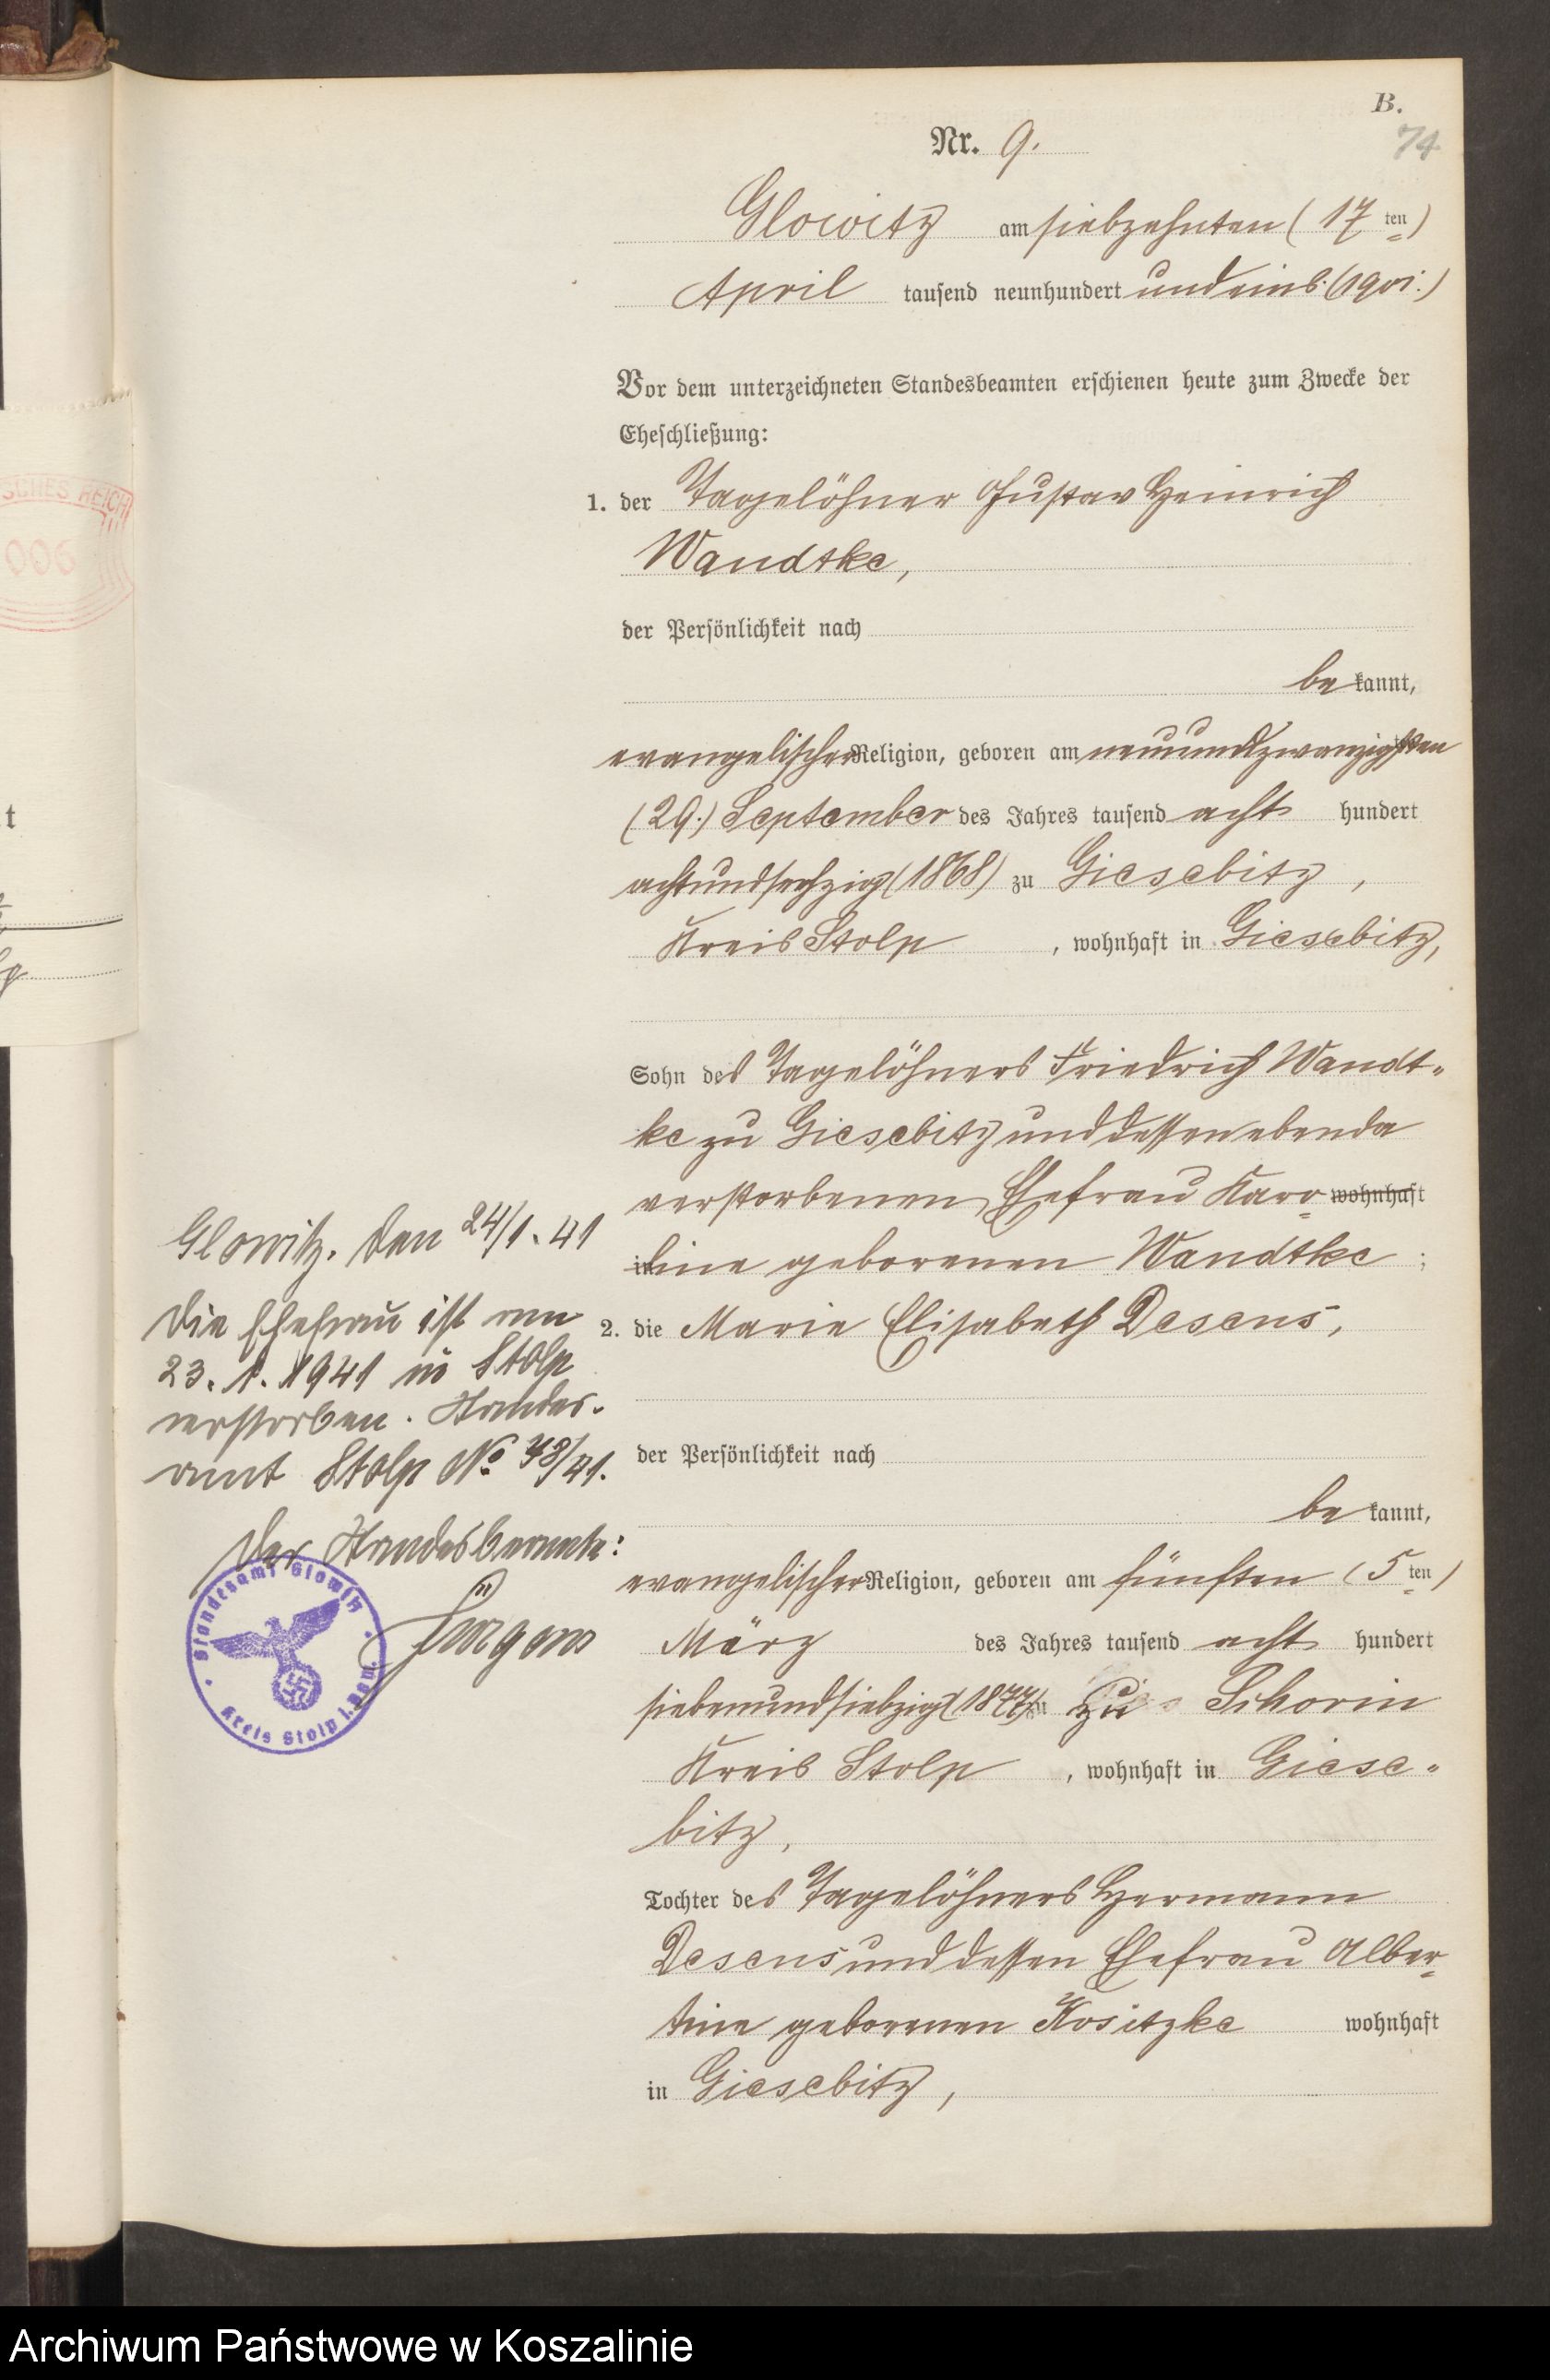 B.
74
Nr. 9.
Glowitz am siebzehnten (17 ten)
April tausend neunhundert und eins. (1901.)
Vor dem unterzeichneten Standesbeamten erschienen heute zum Zwecke der
Eheschließung:
1. der Tagelöhner Gustav Heinrich
Wandtke,
der Persönlichkeit nach
be kannt,
evangelischer Religion, geboren am neunundzwanzigsten
(29.) September des Jahres tausend acht hundert
achtundsechzig (1868) zu Giesebitz,
Kreis Stolp, wohnhaft in Giesebitz,
Sohn des Tagelöhners Friedrich Wandt-
ke zu Giesebitz und dessen ebenda
verstorbenen Ehefrau Karo- wohnhaft
in line geborenen Wandtke;
2. die Marie Elisabeth Desens,
der Persönlichkeit nach
be kannt,
evangelischer Religion, geboren am fünften (5 ten)
März des Jahres tausend acht hundert
siebenundsiebzig (1877) zu Schorin
Kreis Stolp, wohnhaft in Giese-
bitz,
Tochter des Tagelöhners Hermann
Desens und dessen Ehefrau Alber-
tine geborenen Kositzke wohnhaft
in Giesebitz,
Glowitz, den 24/1. 41
Die Ehefrau ist am
23. 1. 1941 in Stolp
verstorben. Standes-
amt Stolp No 48/41.
Der Standesbeamte:
Standesamt Glowitz
Kreis Stolp i. Pom.
SCHES REICH
006
t
Archiwum Państwowe w Koszalinie